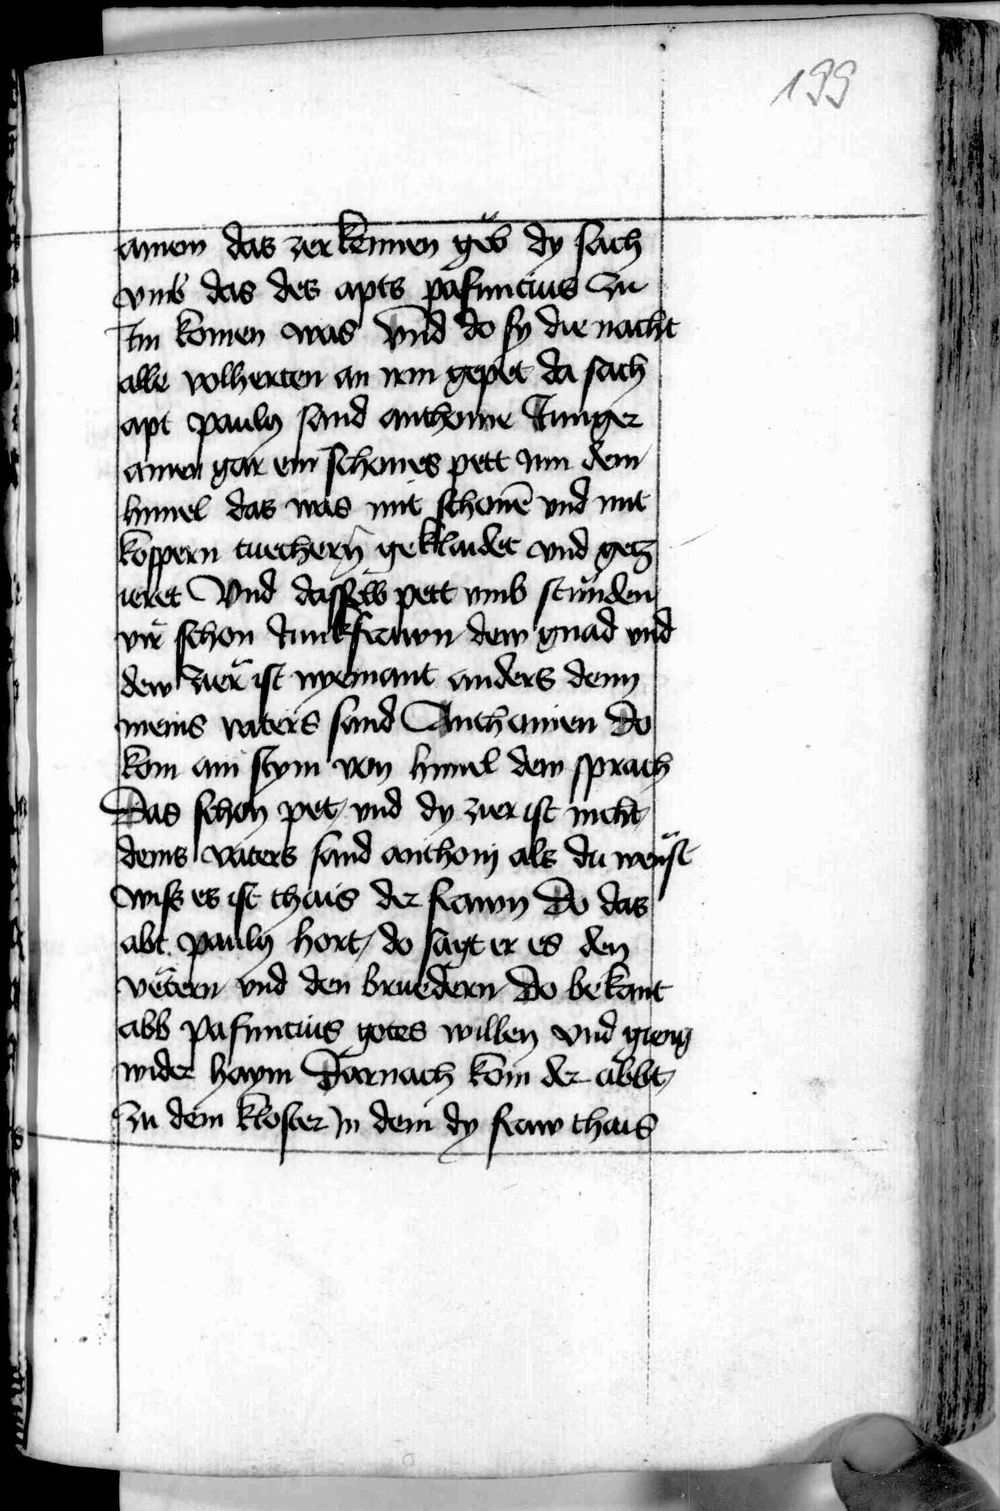 199
ainem das zerkennen geb dy sach
vmb das des apts pafuncius zu
Im komen was Vnd do sy die nacht
alle volherten an irm gepet da sach
apt pauly sand anthonie Junger
ainen gar ein schones pett Inn dem
himel das was mit schonē vnd mit
kospern tuechern geklaidet vnd getz
ieret Vnd dasselb pett vmb stunden
vir schon Junkfrawn dew gnad vnd
dew zier ist nyemant anders denn
meins vaters sand Anthonien Do
kom ain stym von himel dew sprach
Das schon pet vnd dy zier ist nicht
deins vaters sand anthonij als du wenst
wiss es ist thais der frawn Do das
abt pauly hort / do sagt er es den
vetern vnd den bruedern Do bekant
abb pafuncius gotes willen vnd gieng
wider haym Darnach kom der abbt
zu dem kloster In dem dy fraw thais